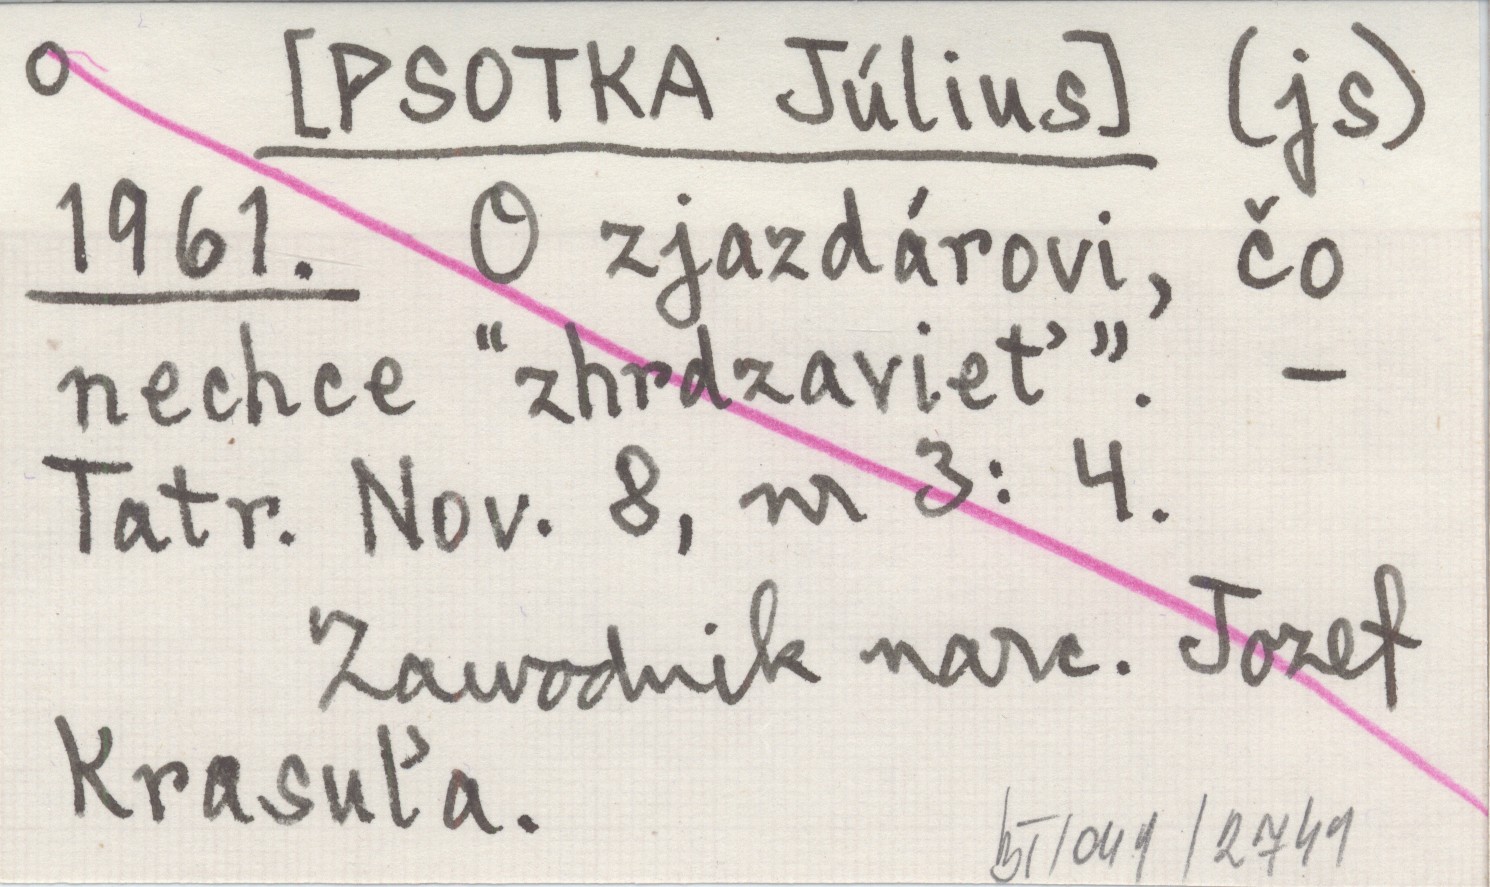 o [PSOTKA Július] (js)
1961. O zjazdárovi, čo
nechce "zhrdzavieť". –
Tatr. Nov. 8, nr 3: 4.
Zawodnik narc. Jozef
Krasuľa.
/044 /2749